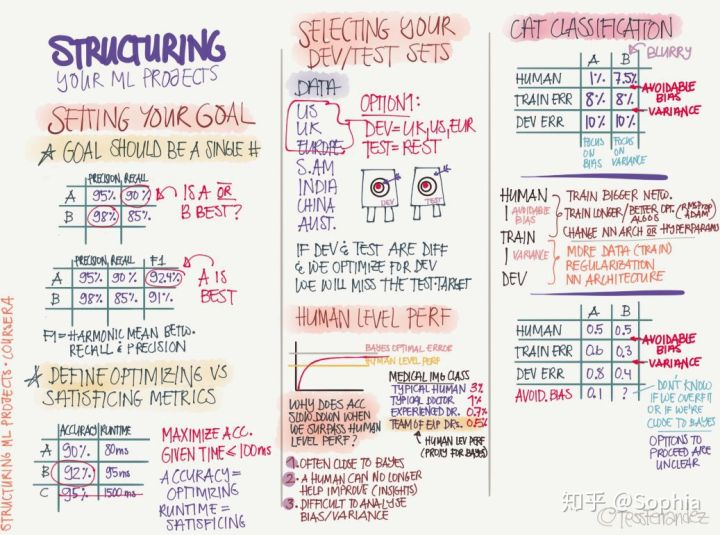 STRUCTURING
YOUR ML PROJECTS
SETTING YOUR GOAL
A GOAL SHOULD BE A SINGLE #
PRECISION, RECALL
A 95% 90%
B 98% 85%
IS A OR
B BEST?
PRECISION, RECALL F1
A 95% 90% 92.4%
B 98% 85% 91%
A IS
BEST
F1 = HARMONIC MEAN BETW.
RECALL & PRECISION
DEFINE OPTIMIZING VS
SATISFICING METRICS
ACCURACY RUNTIME
A 90% 80ms
B 92% 95ms
C 95% 1500 ms
MAXIMIZE ACC.
GIVEN TIME ≤ 100ms
ACCURACY =
OPTIMIZING
RUNTIME =
SATISFICING
STRUCTURING ML PROJECTS · COURSERA
SELECTING YOUR
DEV/TEST SETS
DATA
US
UK
EUROPE
S.AM
INDIA
CHINA
AUST.
OPTION1:
DEV = UK, US, EUR
TEST = REST
DEV
TEST
IF DEV & TEST ARE DIFF
& WE OPTIMIZE FOR DEV
WE WILL MISS THE TEST TARGET
HUMAN LEVEL PERF
BAYES OPTIMAL ERROR
HUMAN LEVEL PERF
MEDICAL IMG CLASS
TYPICAL HUMAN 3%
TYPICAL DOCTOR 1%
EXPERIENCED DR. 0.7%
TEAM OF EXP DRs. 0.5%
HUMAN LEV PERF
(PROXY FOR BAYES)
WHY DOES ACC
SLOW DOWN WHEN
WE SURPASS HUMAN
LEVEL PERF?
1. OFTEN CLOSE TO BAYES
2. A HUMAN CAN NO LONGER
HELP IMPROVE (INSIGHTS)
3. DIFFICULT TO ANALYSE
BIAS/VARIANCE
CAT CLASSIFICATION
A B
BLURRY
HUMAN 1% 7.5%
TRAIN ERR 8% 8%
DEV ERR 10% 10%
AVOIDABLE
BIAS
VARIANCE
FOCUS
ON
BIAS
FOCUS
ON
VARIANCE
HUMAN
AVOIDABLE
BIAS
TRAIN
VARIANCE
DEV
TRAIN BIGGER NETW.
TRAIN LONGER/BETTER OPT. ALGOS (RMSPROP ADAM)
CHANGE NN ARCH OR HYPERPARAMS
MORE DATA (TRAIN)
REGULARIZATION
NN ARCHITECTURE
A B
HUMAN 0.5 0.5
TRAIN ERR 0.6 0.3
DEV ERR 0.8 0.4
AVOID. BIAS 0.1 ?
AVOIDABLE
BIAS
VARIANCE
DON'T KNOW
IF WE OVERFIT
OR IF WE'RE
CLOSE TO BAYES
OPTIONS TO
PROCEED ARE
UNCLEAR
知乎 @Sophia
@TessFernandez